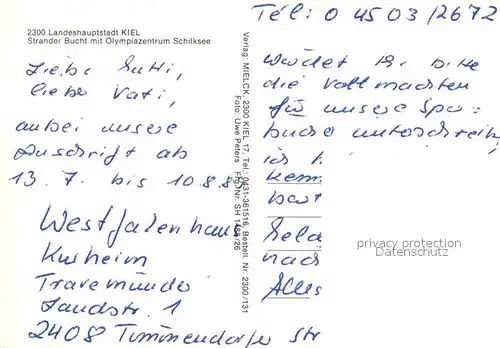 2300 Landeshauptstadt KIEL
Strander Bucht mit Olympiazentrum Schilksee
Liebe Mutti,
lieber Vati,
anbei unsere
Anschrift ab
13.7. bis 10.8.8
Westfalenhaus
Kurheim
Travemünde
Landstr. 1
2408 Timmendorfer Str
Verlag: MIELCK, 2300 KIEL 17, Tel. 0431-361516, Bestell. Nr. 2300/131
Foto: Uwe Peters
Tel: 0 4503/2672
Würdet Ihr bitte
die Vollmachten
für unsere Spar=
bücher unterschreib
ich
Kenn
Geld
nach
Alles
privacy protection
Datenschutz